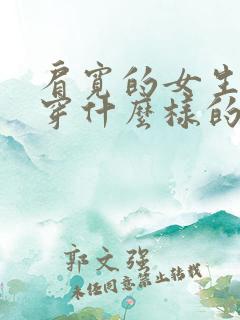 肩寬的女生
穿什麼樣的
郭文强
未經同意禁止轉載